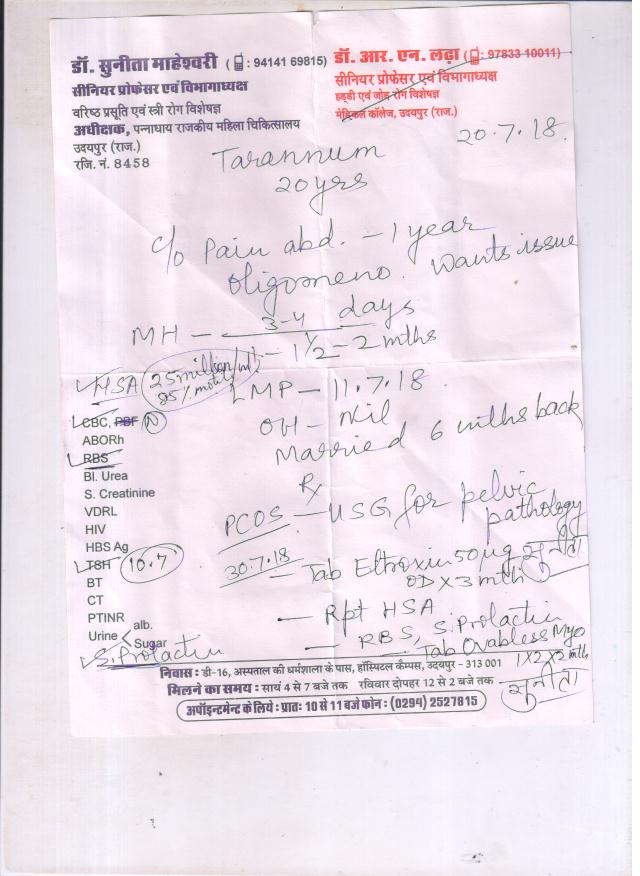 डॉ. सुनीता माहेश्वरी (: 94141 69815)
सीनियर प्रोफेसर एवं विभागाध्यक्ष
वरिष्ठ प्रसूति एवं स्त्री रोग विशेषज्ञ
अधीक्षक, पन्नाधाय राजकीय महिला चिकित्सालय
उदयपुर (राज.)
रजि. नं. 8458
डॉ. आर. एन. लढ़ा (: 97833 10011)
सीनियर प्रोफेसर एवं विभागाध्यक्ष
हड्डी एवं जोड़ रोग विशेषज्ञ
मेडिकल कॉलेज, उदयपुर (राज.)
20.7.18.
Tarannum
20 yrs
c/o Pain abd. - 1 year
Oligomeno. Wants issue
MH - 3-4 days
1 1/2 - 2 mths
HSA 25 million/ml
85% motile
LMP - 11.7.18.
OH - Nil
Married 6 mths back
CBC, PBF N
ABORh
RBS
Bl. Urea
S. Creatinine
VDRL
HIV
HBS Ag
TSH 10.7
BT
CT
PTINR
Urine alb.
Sugar
S. Prolactin
Rx
PCOS - USG for pelvic
pathology
सुनीता
30.7.18 - Tab Eltroxin 50 µg
OD X 3 mth
- Rpt HSA
- RBS, S. Prolactin
- Tab Ovabless Myo
1 X 2 X 2 mth
सुनीता
निवास : डी-16, अस्पताल की धर्मशाला के पास, हॉस्पिटल कैम्पस, उदयपुर - 313 001
मिलने का समय : सायं 4 से 7 बजे तक रविवार दोपहर 12 से 2 बजे तक
अपॉइन्टमेन्ट के लिये : प्रातः 10 से 11 बजे फोन : (0294) 2527815